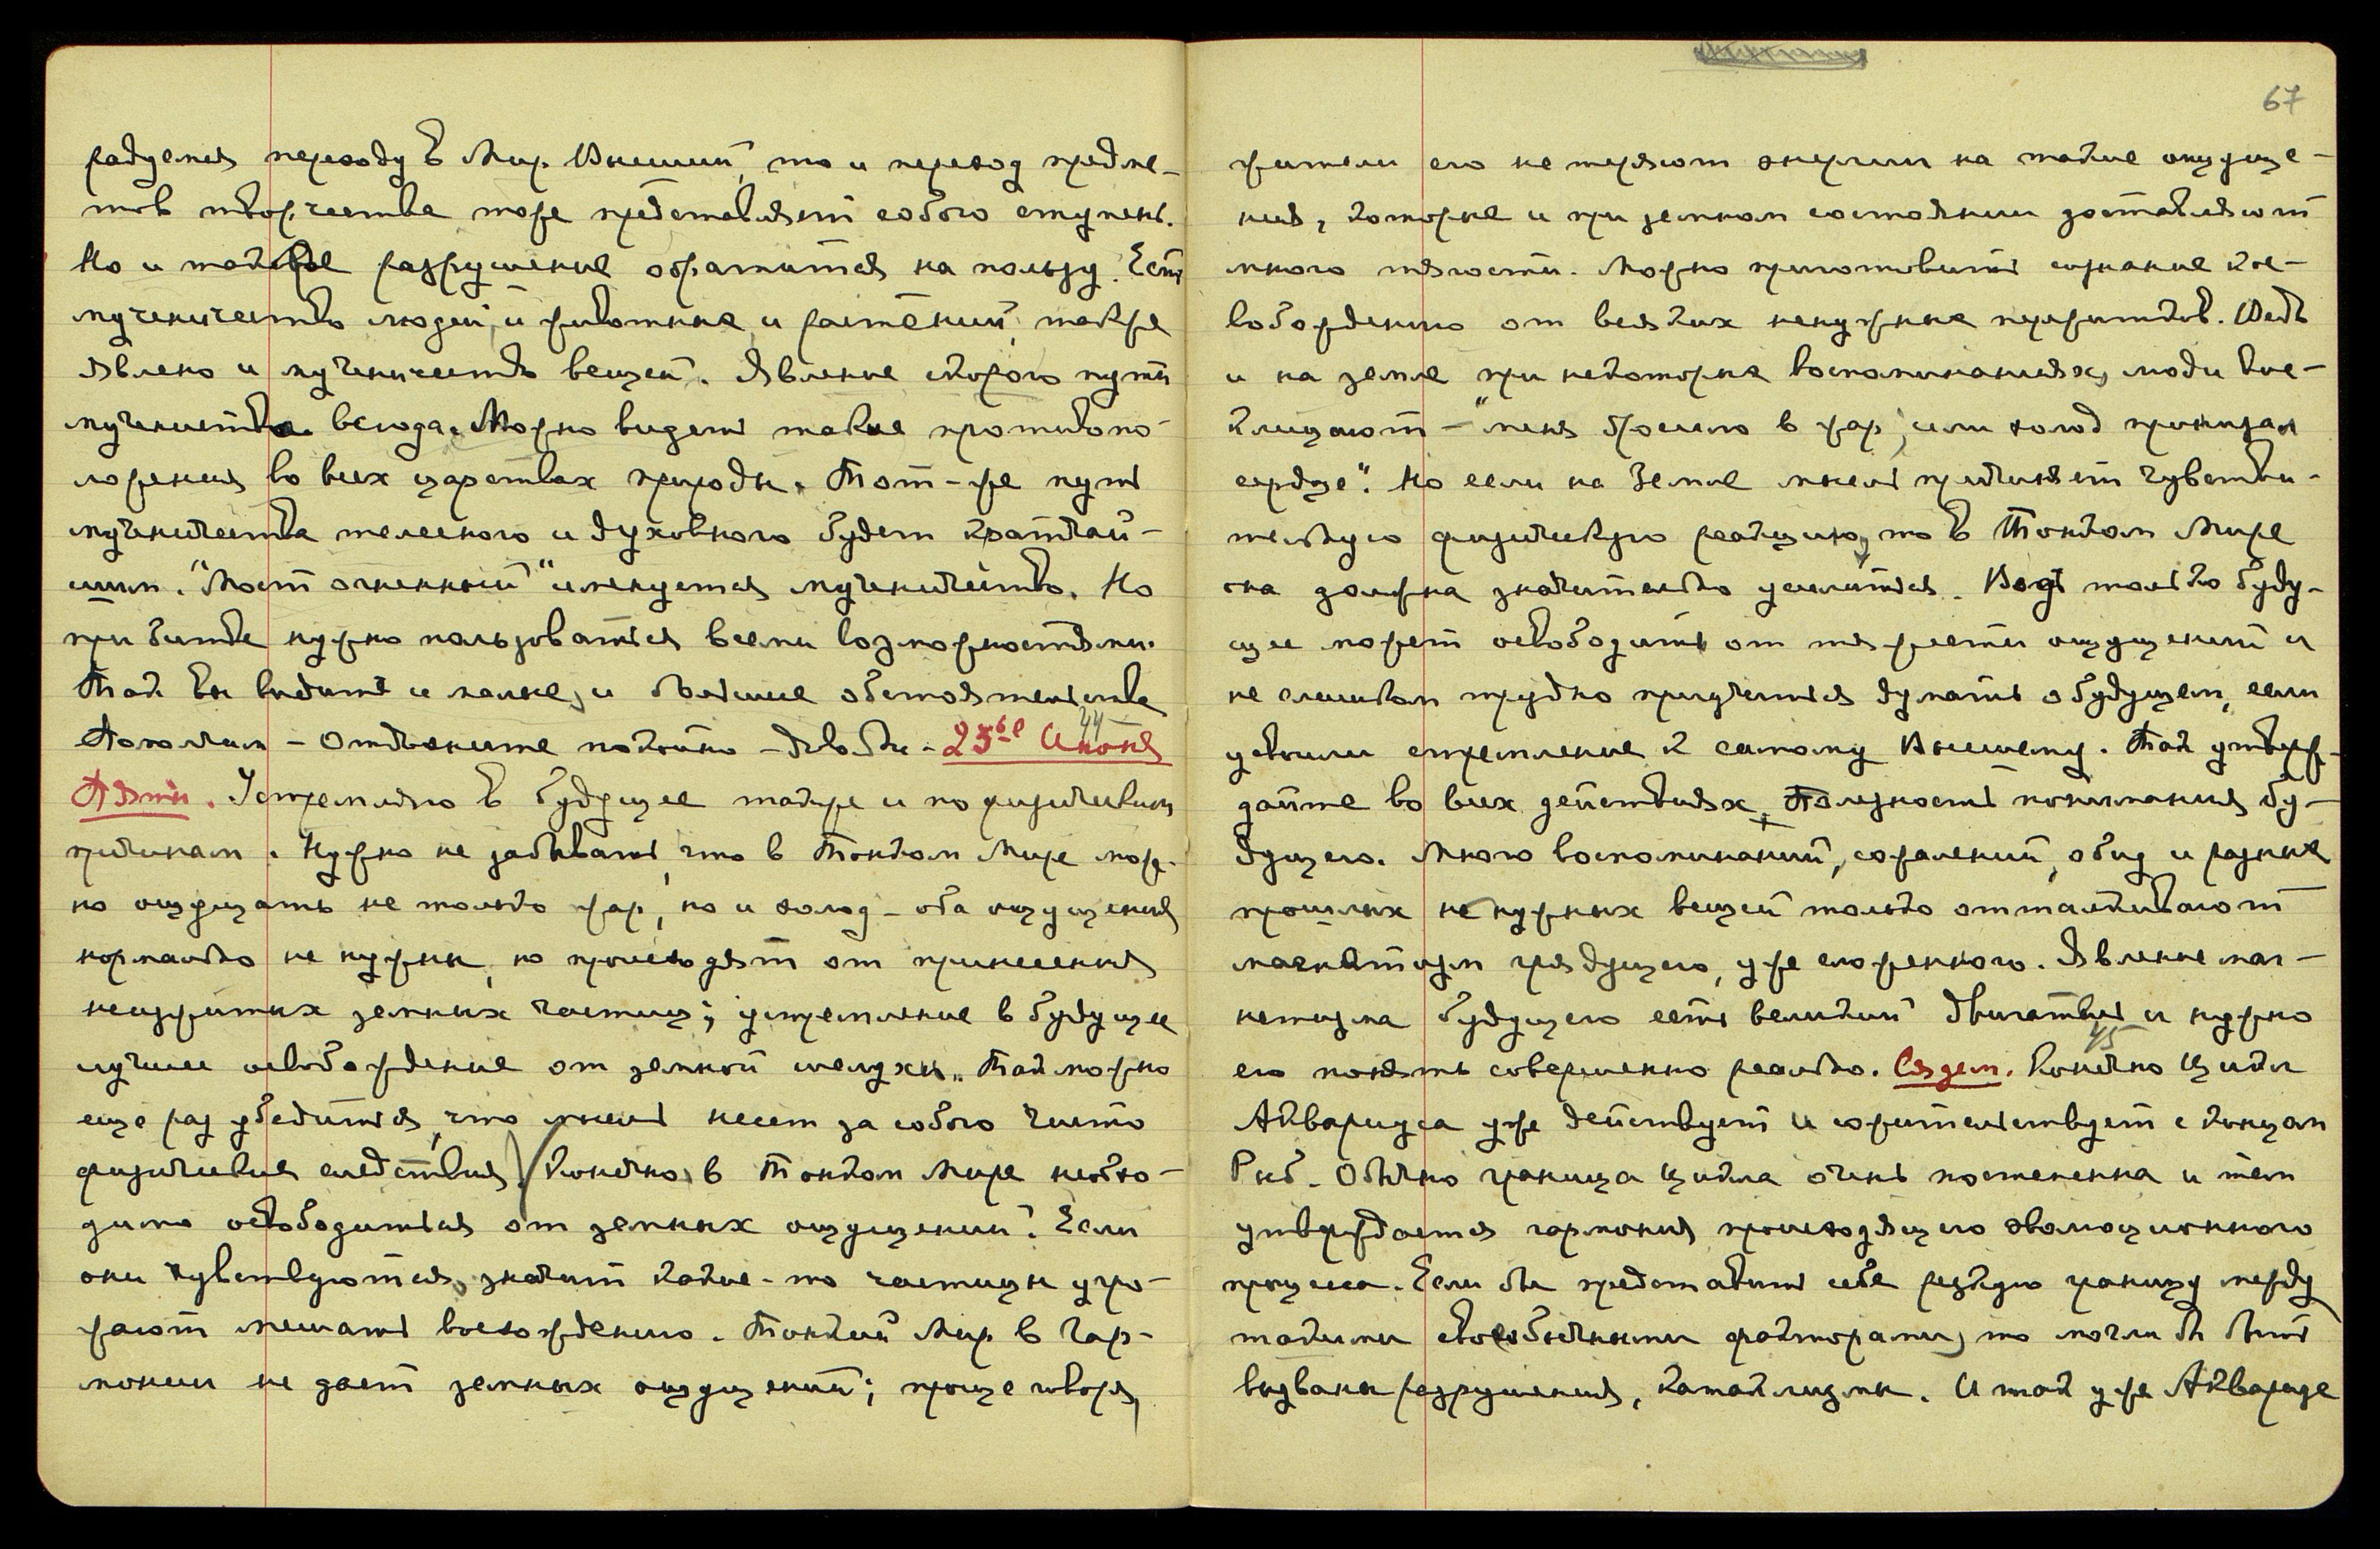 радуемся переходу в Мир Высший, то и переход предме-
тов творчества тоже представляет собою ступень.
Но и такое разрушение обратится на пользу. Есть
мученичество людей, и животных, и растений, также
явлено и мученичество вещей. Явление скорого пути
мученичества всюда. Можно видеть такие противопо-
ложения во всех царствах природы. Тот-же путь
мученичества телесного и духовного будет кратчай-
шим. "Мост огненный" именуется мученичество. Но
при битве нужно пользоваться всеми возможностями.
Так Вы видите и малые, и большие обстоятельства
Поможем – Отъясните покойно – 25ое Июня
44
Пяти. Устремляю в будущее также и по физическим
причинам. Нужно не забывать, что в Тонком Мире мож-
но ощущать не только жар, но и холод – оба ощущения
нормально не нужны, но происходят от принесения
неизжитых земных частиц; устремление в будущее
лучшее освобождение от земной шелухи. Так можно
еще раз убедиться, что мысль несет за собою чисто
физические следствия) Конечно, в Тонком Мире необхо-
димо освободиться от земных ощущений. Если
они чувствуются, значит какие-то частицы угро-
жают мешать восхождению. Тонкий Мир в гар-
монии не дает земных ощущений; проще говоря,
67
жители его не теряют энергии на такие ощуще-
ния, которые и при земном состоянии доставляют
много тягости. Можно приготовить сознание к ос-
вобождению от всяких ненужных пережитков. Ведь
и на земле при некоторых воспоминаниях, люди вос-
клицают – "меня бросило в жар, или холод пронизал
сердце". Но если на Земле мысль причиняет чувстви-
тельную физическую реакцию, то в Тонком Мире
она должна значительно усилиться. Ведь только буду-
щее может освободить от тяжести ощущений и
не слишком трудно приучиться думать о будущем, если
усвоили стремление к самому Высшему. Так утверж-
дайте во всех действиях полезность понимания бу-
дущего. Много воспоминаний, сожалений, обид и разных
прошлых ненужных вещей только отталкивают
магнетизм грядущего, уже сложенного. Явление маг-
нетизма будущего есть великий двигатель и нужно
45
его понять совершенно реально. Сядем. Конечно Цикл
Аквариуса уже действует и сожительствует с концом
Рыб. Обычно граница цикла очень постепенна и тем
утверждается гармония происходящего эволюционного
процесса. Если бы представить себе резкую границу между
такими своеобычными факторами, то могли бы быть
вызваны разрушения, катаклизмы. И так уже Аквариде